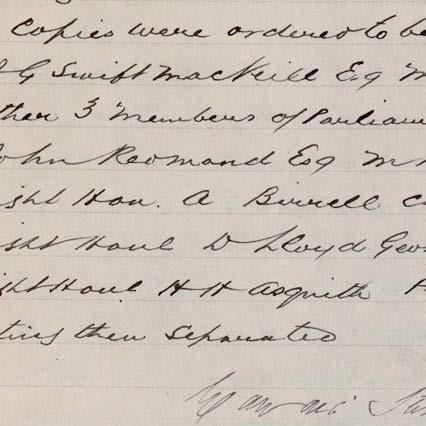 Copies were ordered to be
G Swift MacNeill Esq M
ther 3 Members of Parliam
John Redmond Esq M
ight Hon. A Birrell C
ight Honl D Lloyd Geo
ight Honl H H Asquith P
ting then Separated